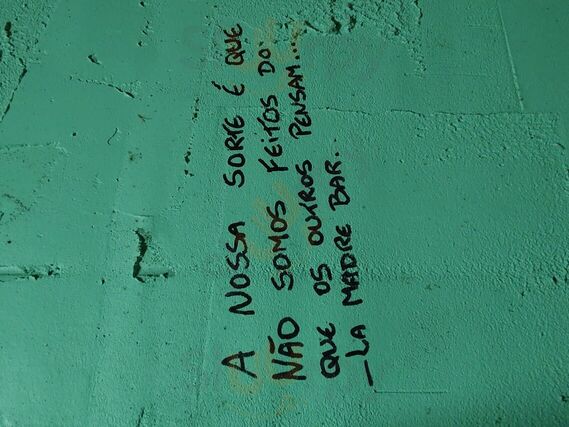 A NOSSA SORTE É QUE
NÃO SOMOS FEITOS DO
QUE OS OUTROS PENSAM...
— LA MADRE BAR.